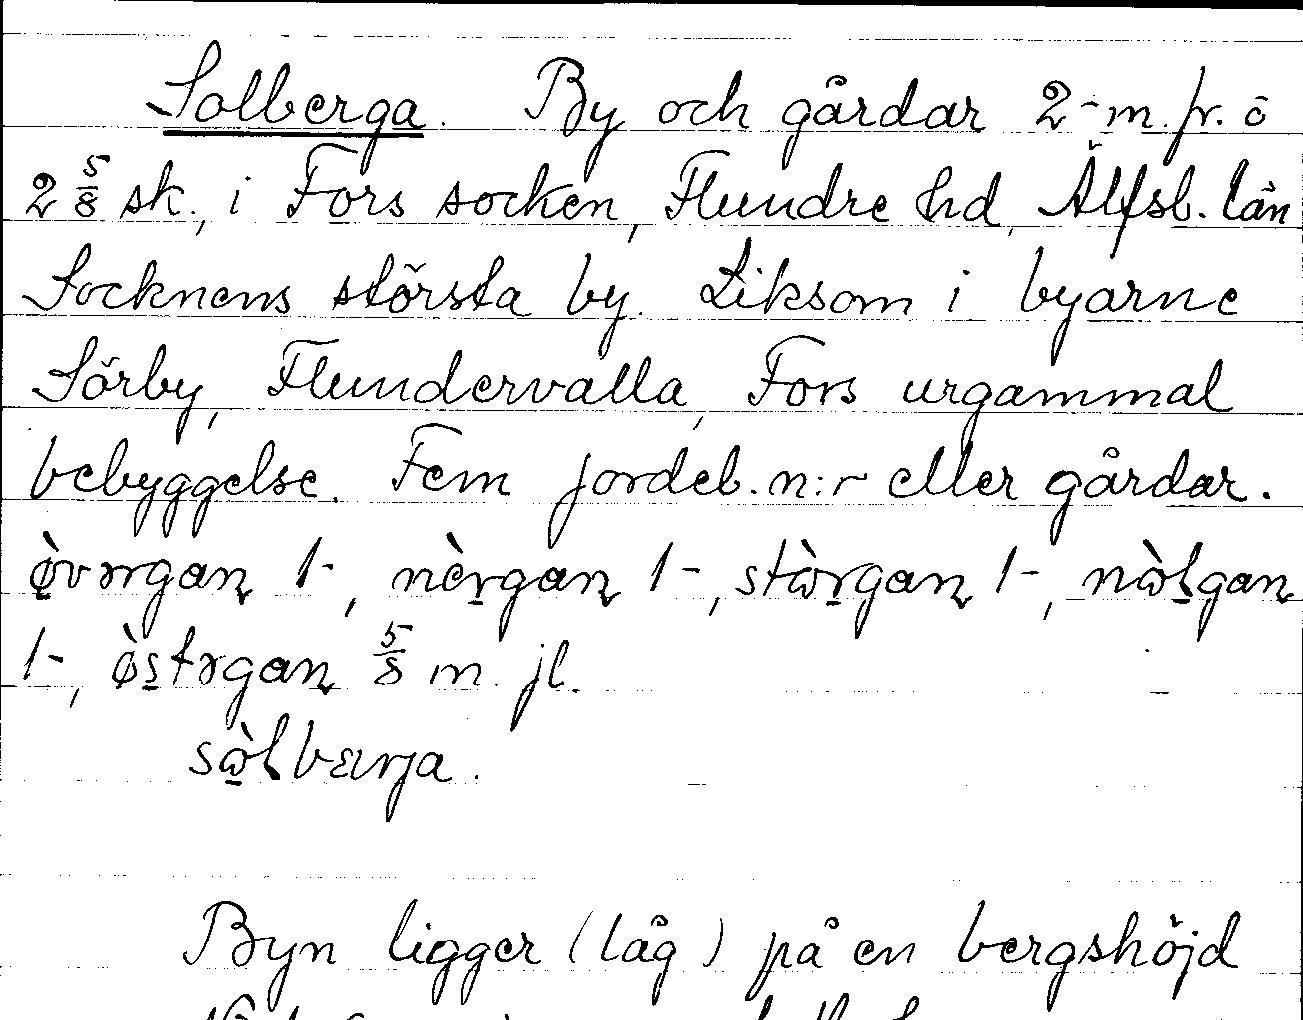 Solberga. By och gårdar 2 - m. fr. o
2 5/8 sk., i Fors socken, Flundre hd, Älfsb. län
Socknens största by. Liksom i byarne
Sörby, Flundervalla, Fors urgammal
bebyggelse. Fem jordeb. n:r eller gårdar.
ø̀vərgaɳ 1-, nèrgaɳ 1-, stàrgaɳ 1-, nòlgaɳ
1-, ø̀stərgaɳ 5/8 m. jl.
sòlbærja.
Byn ligger (låg) på en bergshöjd